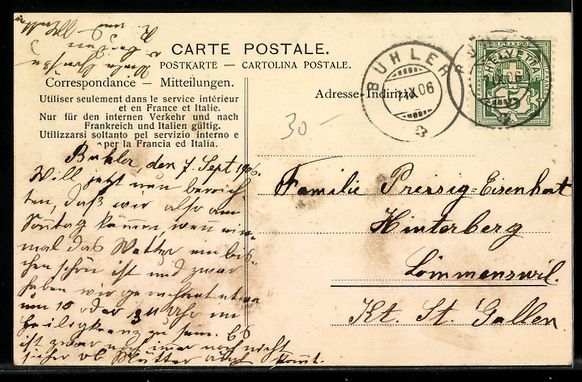 CARTE POSTALE.
POSTKARTE — CARTOLINA POSTALE.
Correspondance — Mitteilungen.
Utiliser seulement dans le service intérieur
et en France et Italie.
Nur für den internen Verkehr und nach
Frankreich und Italien gültig.
Utilizzarsi soltanto pel servizio interno e
per la Francia ed Italia.
Adresse-Indirizzo
BÜHLER
IX 06
30 -
Buhler, den 7. Sept 1906.
Will jetzt nun berich-
ten, daß wir also am
Sonntag kommen, wen ein-
mal das Wetter ein bis-
chen schön ist und zwar
haben wir gerechnet etwa
um 10 oder Uhr in
heiligkreuz zu sein. Es
ist zwar noch nicht
sicher ob Mutter auch kommt.
Familie Pressig-Eisenhut
Hinterberg
Lömmenswil.
Kt. St. Gallen